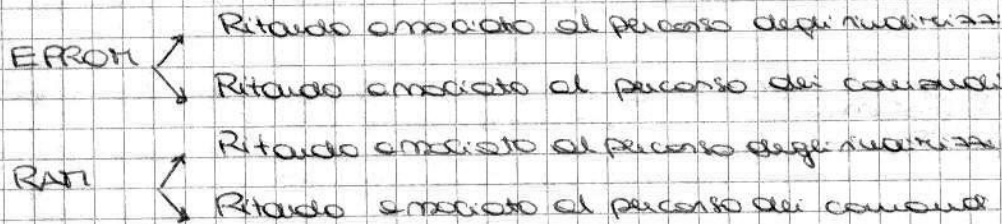 Ritardo associato al percorso degli indirizzi
EPROM
Ritardo associato al percorso dei comandi
Ritardo associato al percorso degli indirizzi
RAM
Ritardo associato al percorso dei comandi